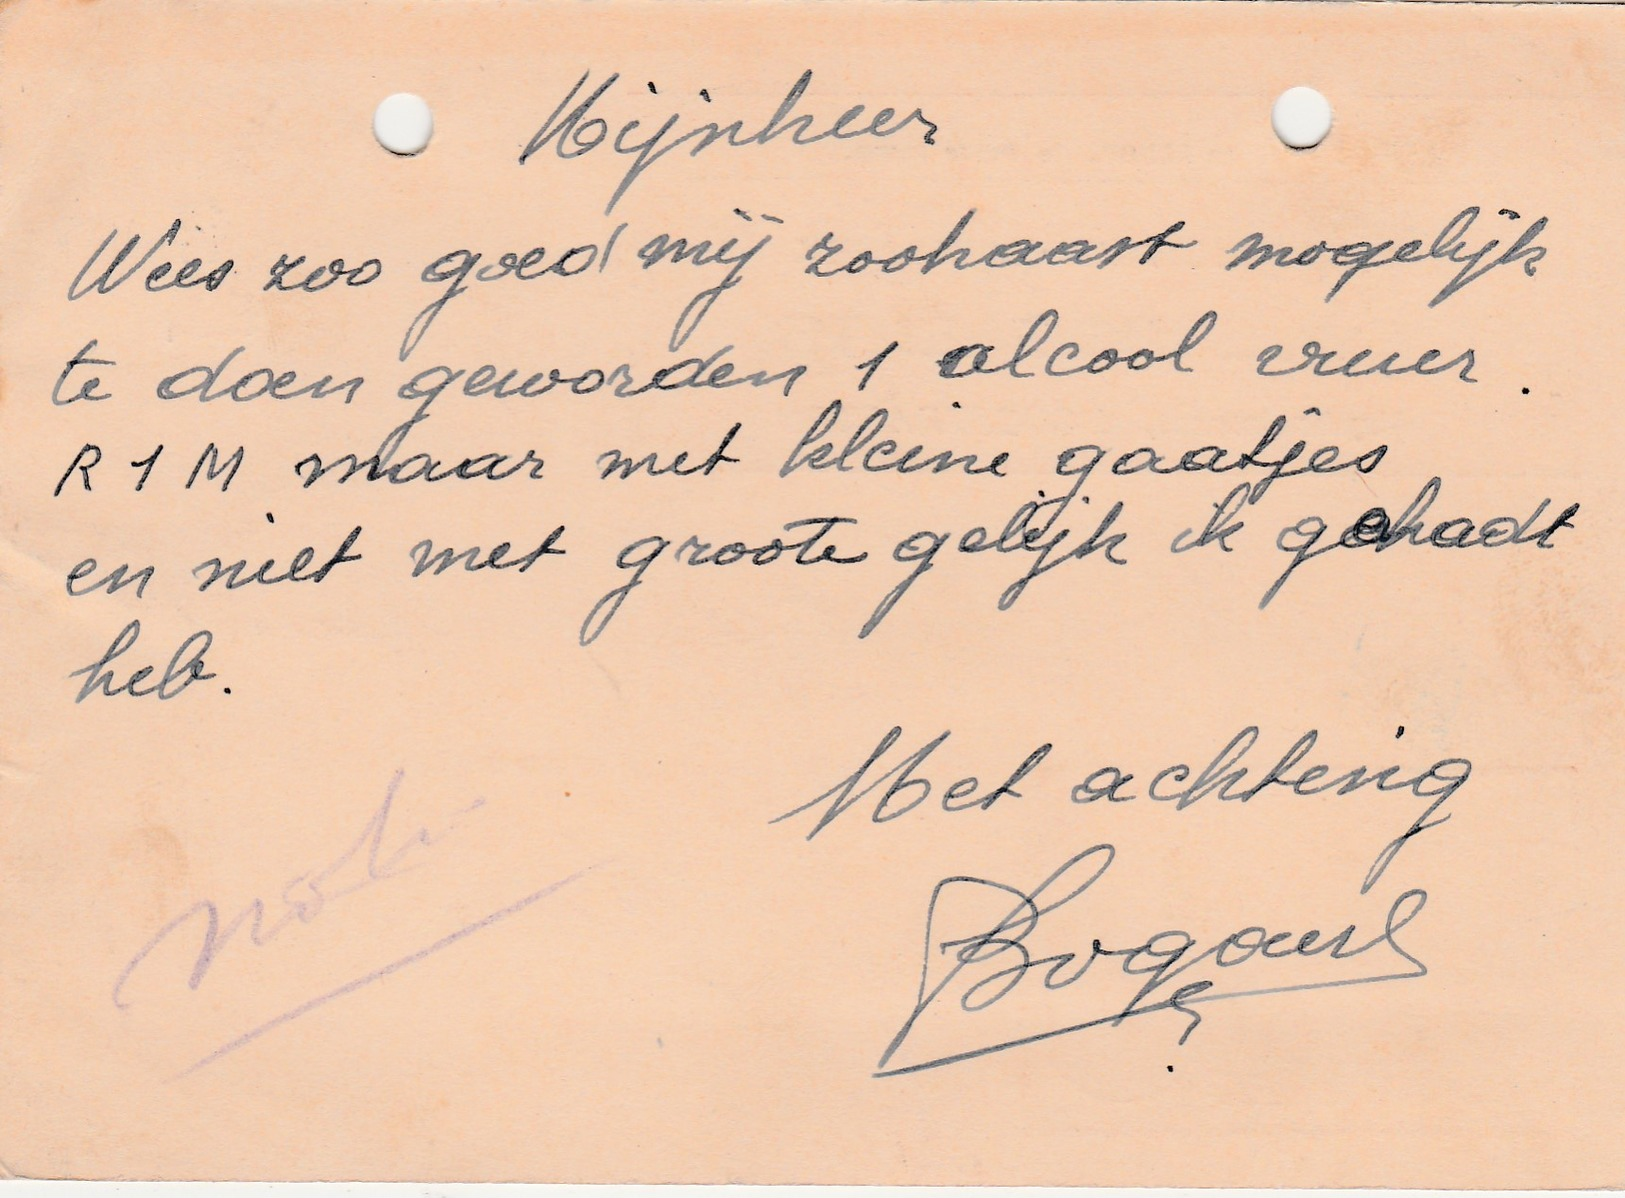 Mijnheer
Wees zoo goed mij zoohaast mogelijk
te doen geworden 1 alcool vuur.
R 1 M maar met kleine gaatjes
en niet met groote gelijk ik gehadt
heb.
Met achting
Bogaert